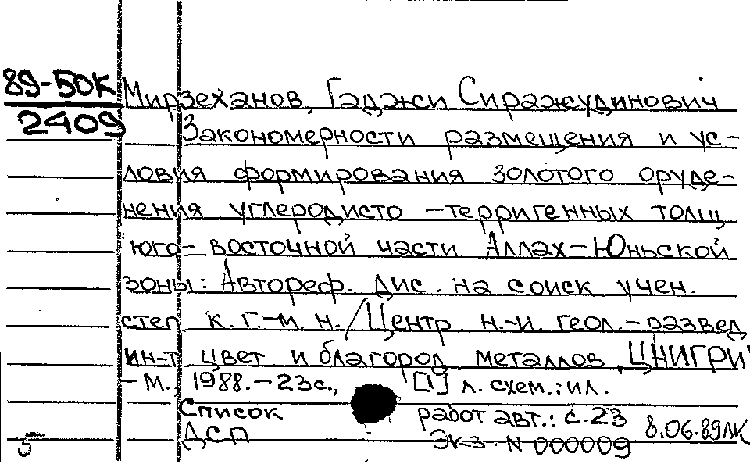 89-50К
2409
Мирзеханов, Гаджи Сиражудинович
Закономерности размещения и ус-
ловия формирования золотого оруде-
нения углеродисто-терригенных толщ
юго-восточной части Аллах-Юньской
зоны: Автореф. дис. на соиск. учен.
степ к. г.-м. н. / Центр н.-и. геол.-развед
ин-т цвет и благород металлов ЦНИГРИ
- М., 1988. - 23с., [1] л. схем.: ил.
Список работ авт.: с. 23
ДСП Экз. N 000009
8.06.89
5